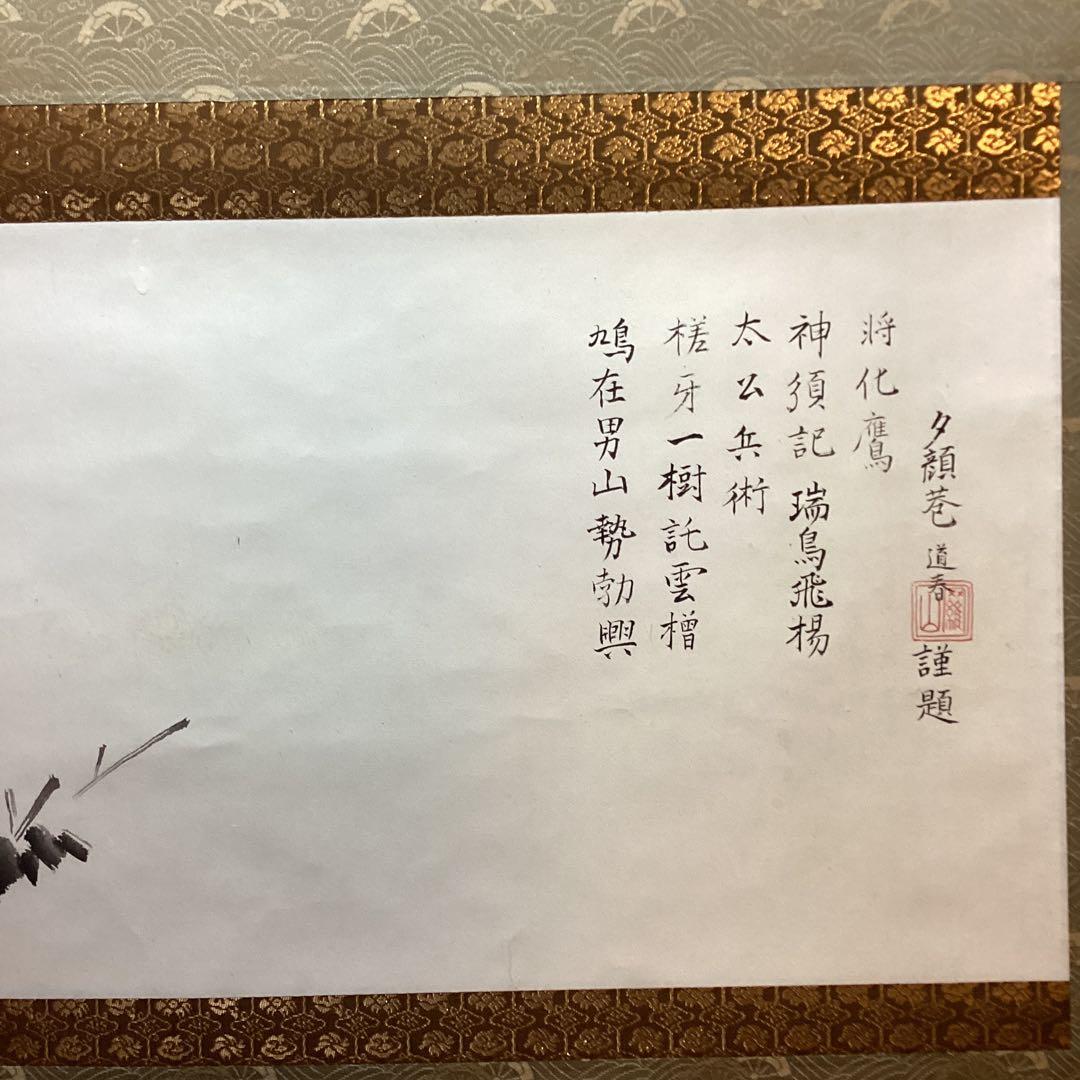 鳩在男山勢勃興
槎牙一樹託雲橧
太公兵術
神須記瑞鳥飛揚
將化鷹
夕顔巷道春謹題
羅山